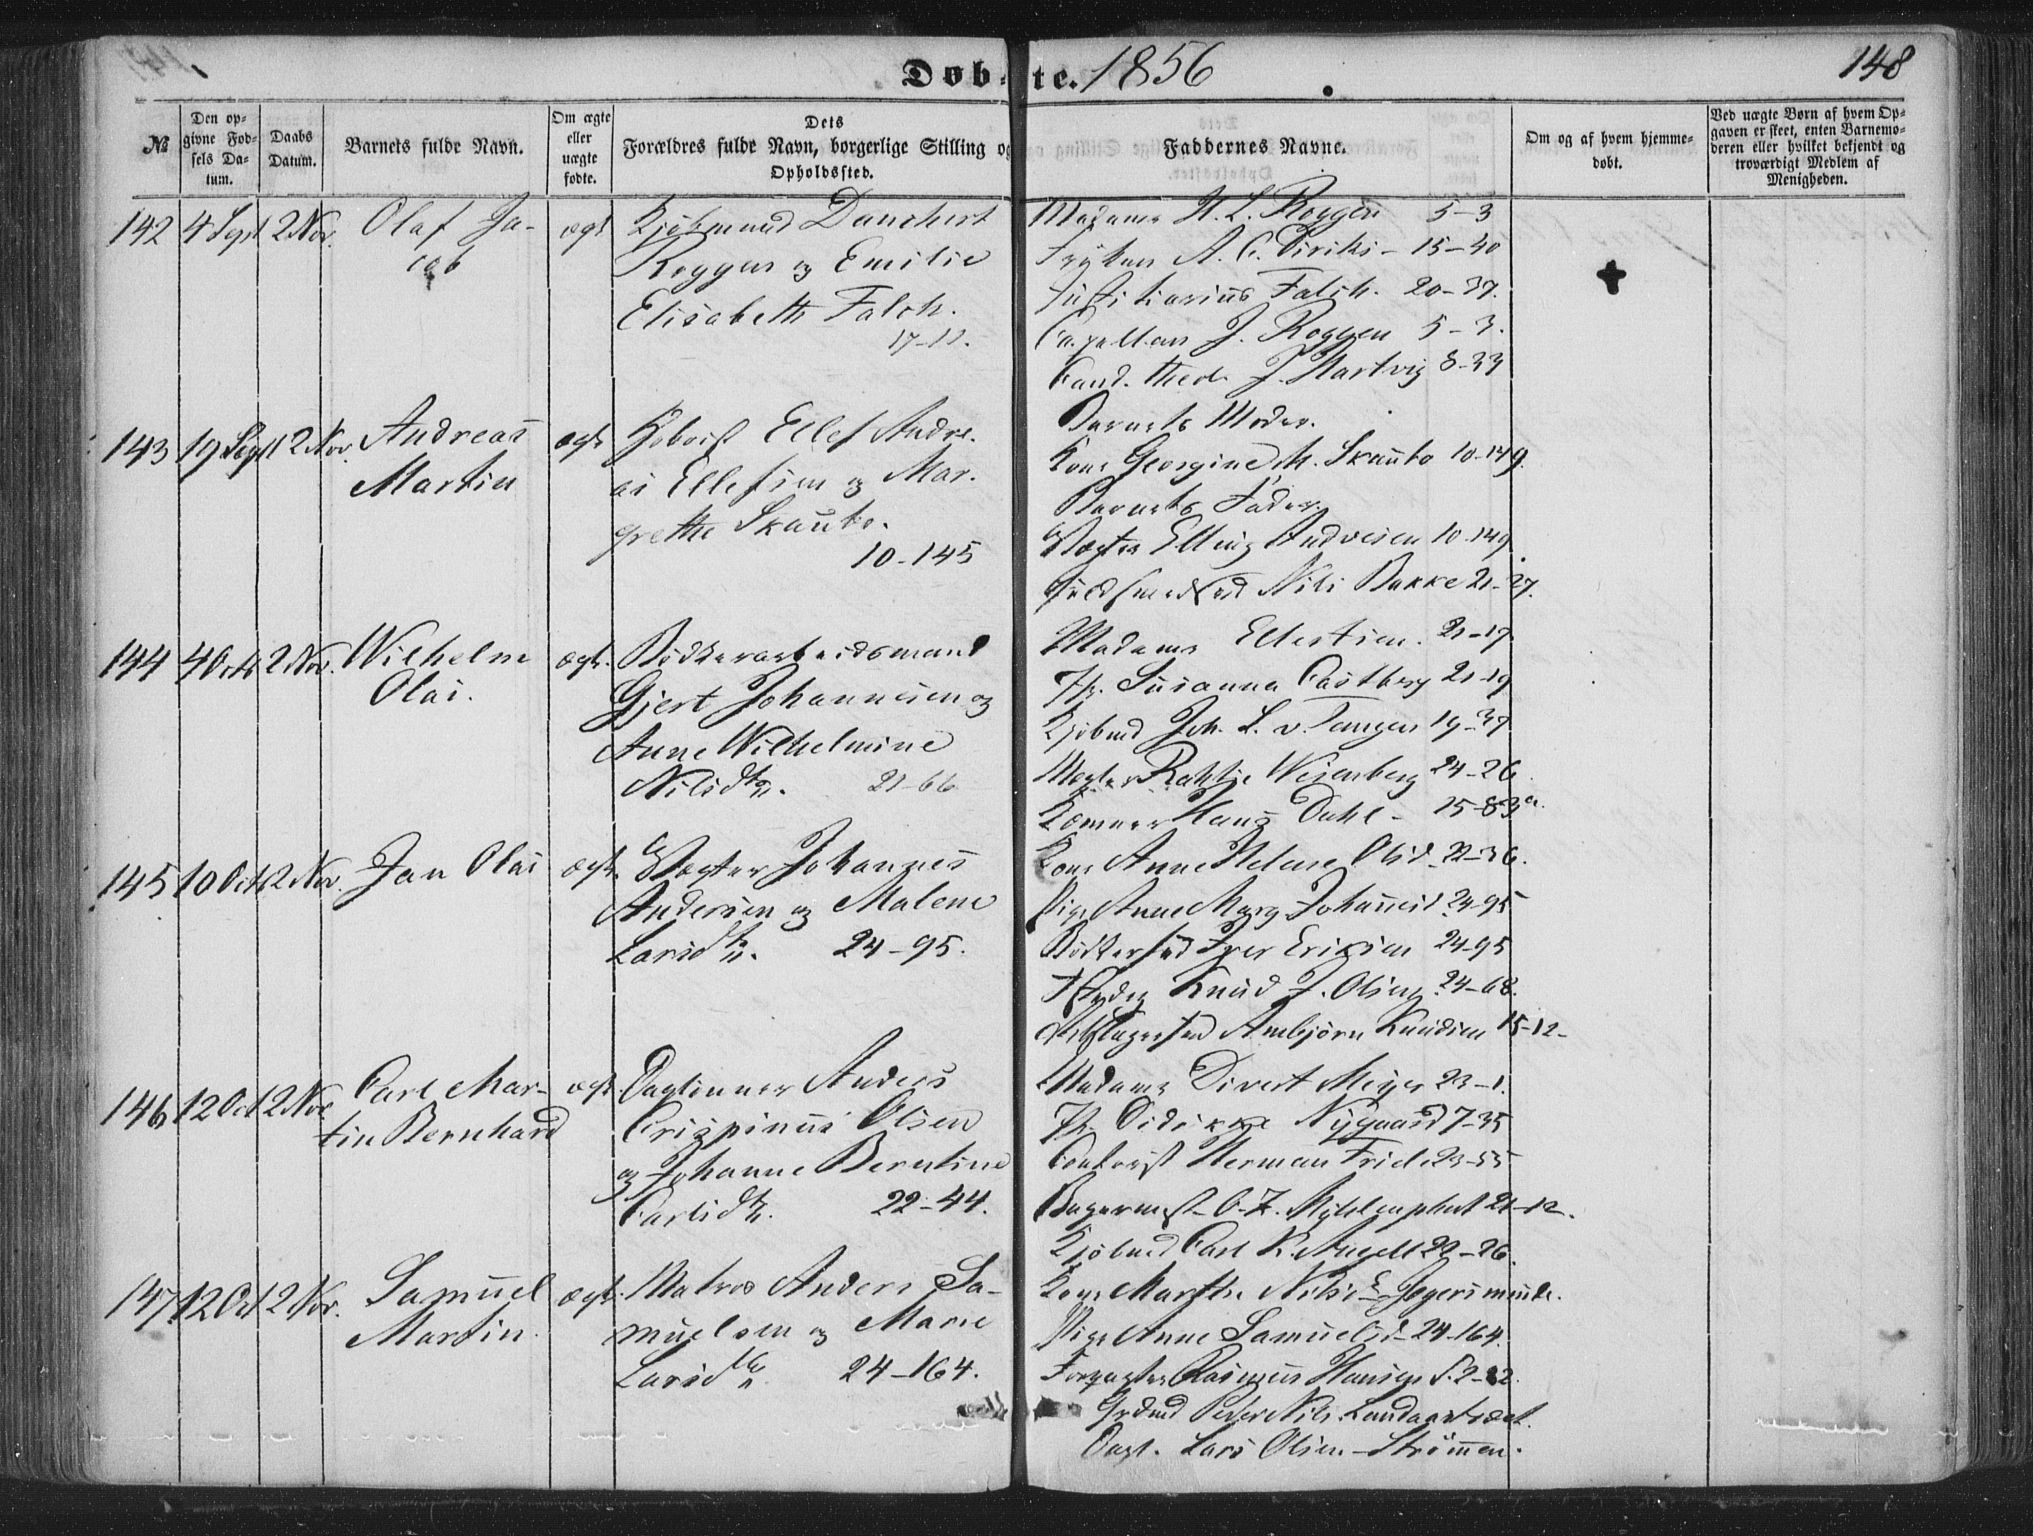 Døb- te. 1856
148
№
Den op-
givne Fød-
sels Da-
tum.
Daabs
Datum.
Barnets fulde Navn.
Om ægte
eller
uægte
fødte.
Dets
Forældres fulde Navn, borgerlige Stilling og
Opholdssted.
Faddernes Navne.
Om og af hvem hjemme-
døbt.
Ved uægte Børn af hvem Op-
gaven er skeet, enten Barnemo-
deren eller hvilket bekjendt og
troværdigt Medlem af
Menigheden.
142 4 Sept 2 Nov. Olaf Ja-
cob
ægt
Danchert
Roggen og Emilie
Elisabeth Falch.
Madame H. L. Roggen 5-3
Frøken A. C. Diriks - 15-40
Justitiarius Falch. 20-37.
Capellan J. Roggen 5-3.
Cand. theol. J. Hartvig 8-33
143 19 Sept 2 Nov. Andreas
Martin
ægt
Ellef Andre-
as Ellefsen og Mar-
grethe Skauko.
10-145
Barnets Moder.
Kone Georgine M. Skauko 10-149.
Barnets Fader.
Vægter Elling Andresen 10-149
Nils Bakke 21-27.
144 4 Octb 2 Nov. Wilhelm
Olai.
ægt.
Bødkerarbeidsmand
Gjert Johannesen og
Anne Wilhelmine
Nilsdtr. 21-66
Madame Ellertsen. 21-17
Jfr. Susanna Castberg 21-19
Kjøbmd Joh. L. v. Tangen 19-37
Wesenberg 24-26.
Kæmner Hans Dahl - 15-83a.
145 10 Octb 2 Nov. Jan Olai
ægt.
Vægter Johannes
Andersen og Malene
Larsdtr. 24-95.
Kone Anne Helene Olsd. 22-36.
Pige Anne Marg Johannesd 24-95
Bødkersvd Iver Eriksen 24-95
Knud J. Olsen 24-68.
Ambjørn Knudsen 15-12-
146 12 Oct 2 Nov Carl Mar-
tin Bernhard
ægt.
Dagleønner Anders
Crispinus Olsen
og Johanne Berntine
Carlsdtr. 22-44.
Madame Divert Meyer 23-1.
Jfr. Didrikke Nygaard 7-35
Herman Friele 23-55
21-12.
Kjøbmd Carl K. Angell 22-26.
147 12 Oct 2 Nov. Samuel
Martin.
ægt.
Matros Anders Sa-
muelsen og Marie
Larsdtr 24-164.
Kone Marthe Nilsd Jegersminde.
Pige Anne Samuelsd. 24-164.
Rasmus Hansen
Peder Nils.
Dagl. Lars Olsen - Strømmen.